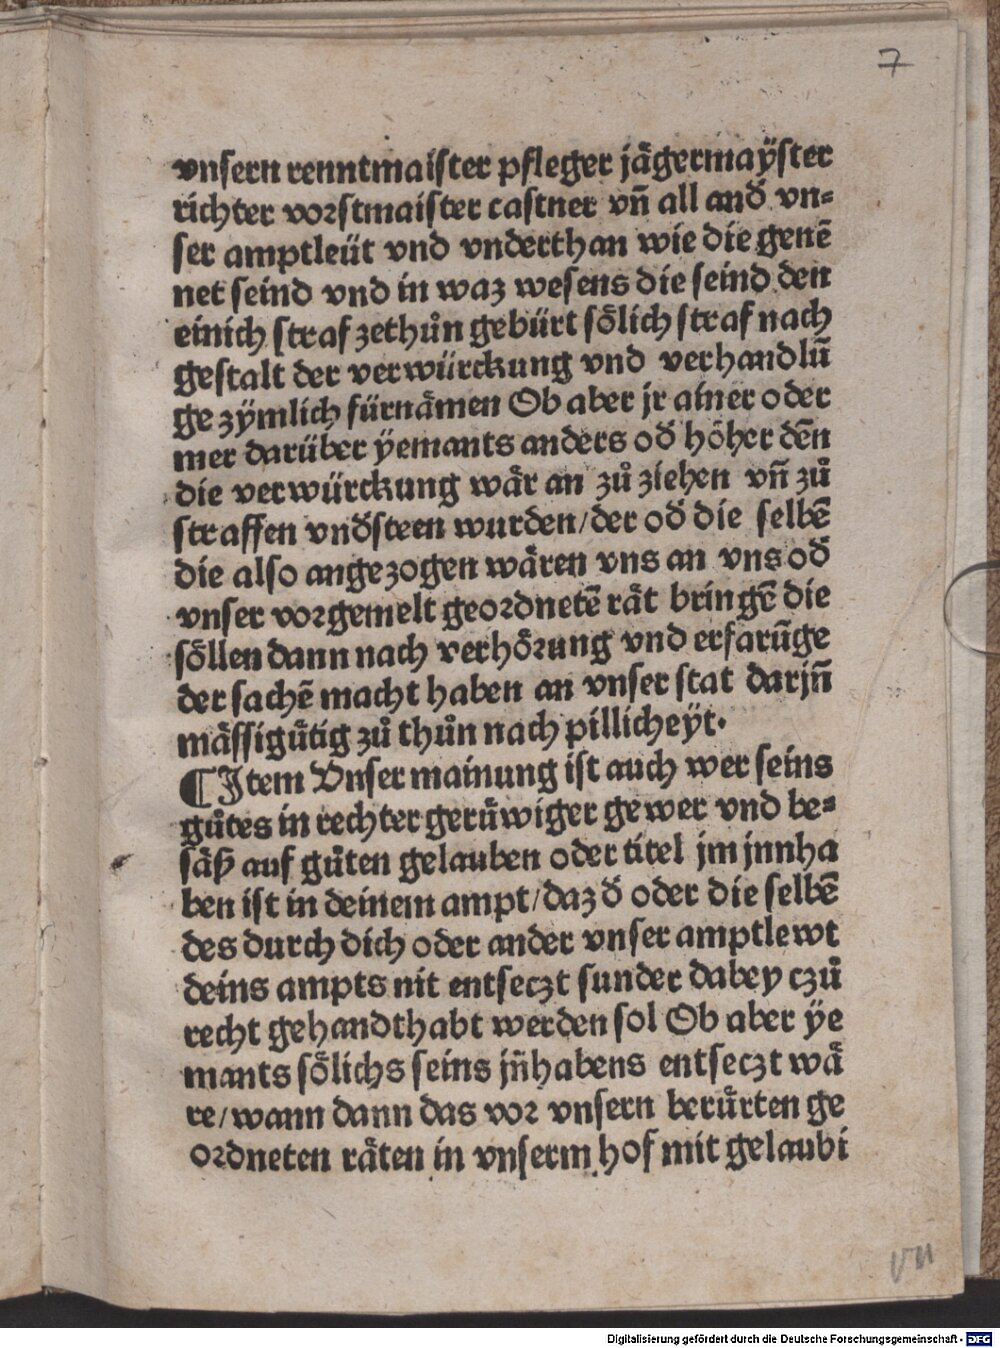 7
vnſern renntmaiſter pfleger jaͤgermaÿſter
richter vorſtmaiſter caſtner vn̄ all and̾ vn⸗
ſer amptleüt vnd vnderthan wie die genē
net ſeind vnd in waz weſens die ſeind den
einich ſtraf zethuͦn gebürt ſoͤlich ſtraf nach
geſtalt der verwürckung vnd verhandlū
ge zÿmlich fürnaͤmen Ob aber jr ainer oder
mer darüber ÿemants anders od̾ hoͤher dēn
die verwürckung waͤr an zuͦ ziehen vn̄ zuͦ
ſtraffen vnd̾ſteen wurden/der od̾ die ſelbē
die alſo angezogen waͤren vns an vns od̾
vnſer vorgemelt geordnetē raͤt bringē die
ſoͤllen dann nach verhoͤrung vnd erfarūge
der ſachē macht haben an vnſer ſtat darjn̄
maͤſſiguͤtig zuͦ thuͦn nach pillicheÿt.
¶Item Vnſer mainung iſt auch wer ſeins
guͦtes in rechter geruͤwiger gewer vnd be⸗
ſaͤß auf guͦten gelauben oder titel jm jnnha
ben iſt in deinem ampt/daz d̾ oder die ſelbē
des durch dich oder ander vnſer amptlewt
deins ampts nit entſeczt ſunder dabey czuͦ
recht gehandthabt werden ſol Ob aber ÿe
mants ſoͤlichs ſeins jn̄habens entſeczt waͤ
re/wann dann das vor vnſern beruͤrten ge
ordneten raͤten in vnſerm hof mit gelaubi
VII
Digitalisierung gefördert durch die Deutsche Forschungsgemeinschaft - DFG